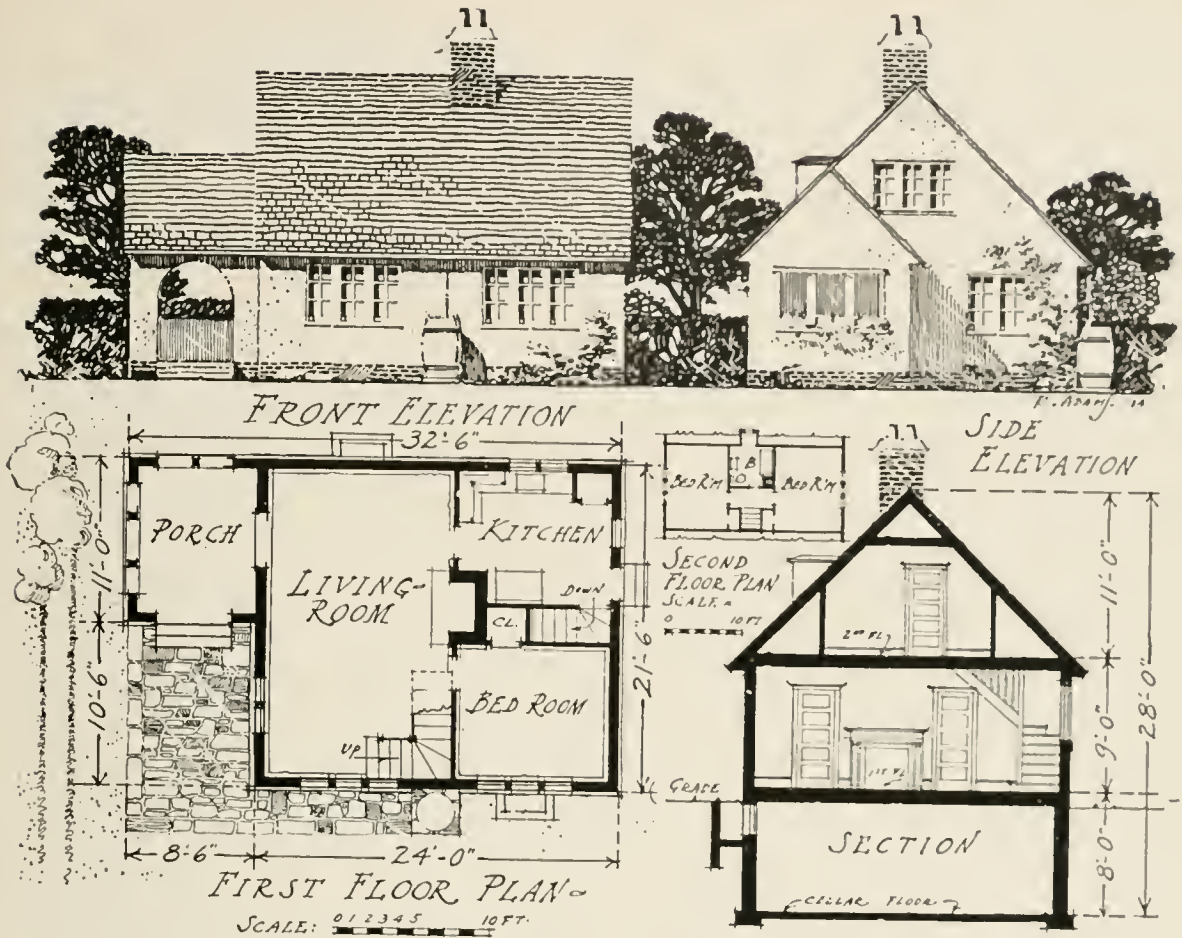 E. ADAMS. 14
FRONT ELEVATION
SIDE
ELEVATION
32'-6"
PORCH
LIVING-
ROOM
KITCHEN
DOWN
CL.
BED ROOM
UP
11'-0"
10'-6"
21'-6"
8'-6"
24'-0"
FIRST FLOOR PLAN
SCALE: 0 1 2 3 4 5 10 FT.
BED R'M
B
BED R'M
SECOND
FLOOR PLAN
SCALE
0 10 FT
2ND FL
1ST FL
GRADE
SECTION
CELLAR FLOOR
11'-0"
9'-0"
8'-0"
28'-0"